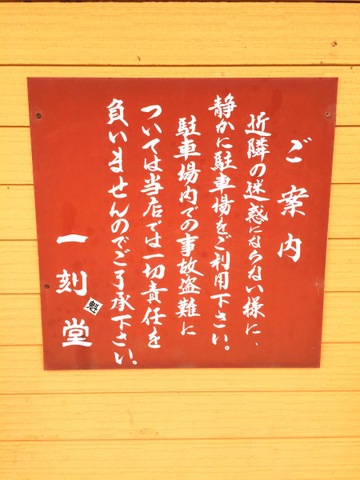 ご案内
近隣の迷惑にならない様に、
静かに駐車場をご利用下さい。
駐車場内での事故盗難に
ついては当店では一切責任を
負いませんのでご了承下さい。
一刻堂